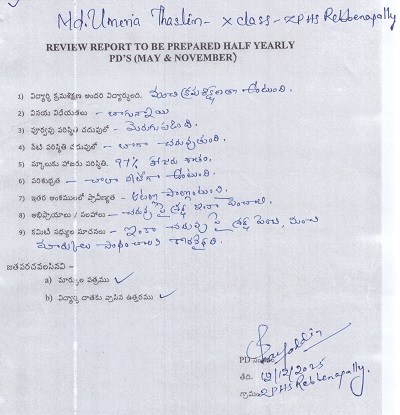 Md. Umeria Thaslein - X class - ZPHS Rebbenapally
REVIEW REPORT TO BE PREPARED HALF YEARLY
PD'S (MAY & NOVEMBER)
1) విద్యార్థి క్రమశిక్షణ అందరి విద్యార్థులది. మంచి క్రమశిక్షణతో ఉంటుంది.
2) వినయ విధేయతలు - బాగున్నాయి
3) పూర్వపు పరిస్థితి చదువులో - మెరుగుపడింది.
4) నేటి పరిస్థితి చదువులో - బాగా చదువుతుంది.
5) స్కూలుకు హాజరు పరిస్థితి. 97% హాజరు శాతం.
6) పరిశుభ్రత - చాలా నీట్‌గా ఉంటుంది.
7) ఇతర అంశములలో ప్రావీణ్యత -
8) అభిప్రాయాలు / సలహాలు - చదువు పై శ్రద్ధ ఇంకా పెంచాలి.
9) కమిటీ సభ్యుల సూచనలు - ఇంకా చదువు పై శ్రద్ధ పెంచి, మంచి
మార్కులు
జతపరచవలసినవి -
a) మార్కుల పత్రము ✓
b) విద్యార్థి దాతకు వ్రాసిన ఉత్తరము ✓
PD
తేది. 19/12/2025
గ్రామం ZPHS Rebbenapally.